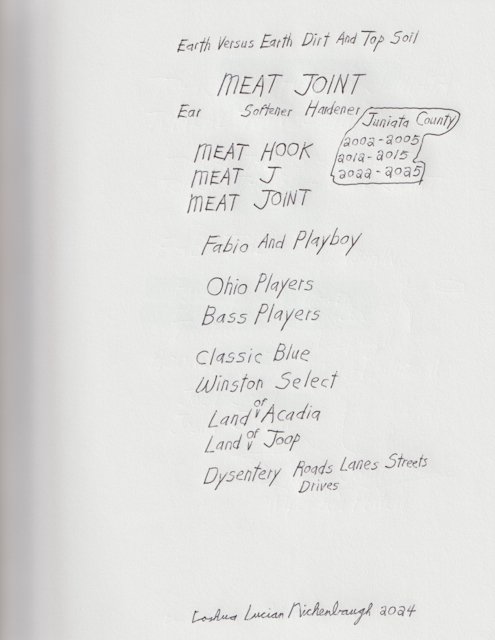 Earth Versus Earth Dirt And Top Soil
MEAT JOINT
Ear Softener Hardener
Juniata County
2002-2005
2012-2015
2022-2025
MEAT HOOK
MEAT J
MEAT JOINT
Fabio And Playboy
Ohio Players
Bass Players
Classic Blue
Winston Select
Land of Acadia
Land of Joop
Dysentery Roads Lanes Streets
Drives
Joshua Lucian Michenbaugh 2024